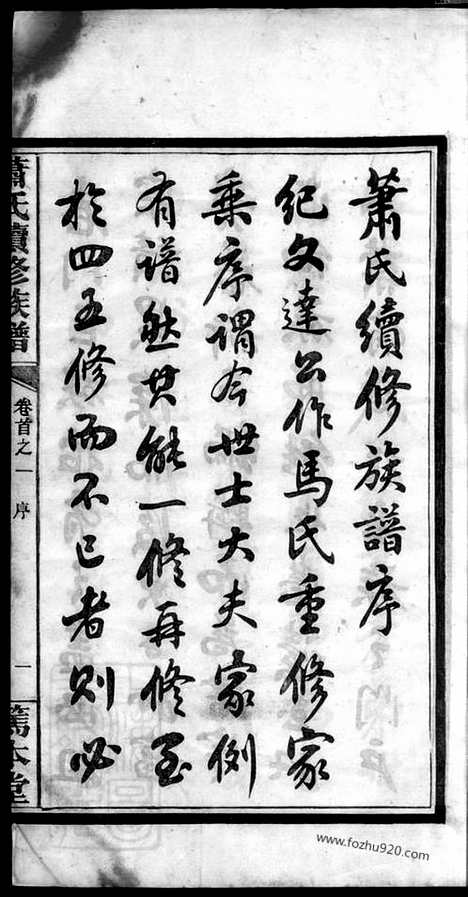 蕭氏續修族譜序
紀文達公作馬氏重修家
乘序謂今世士大夫家例
有譜然其能一修再修至
於四五修而不已者則必
蕭氏續修族譜
卷首之一 序
一
篤本堂
www.fozhu920.com